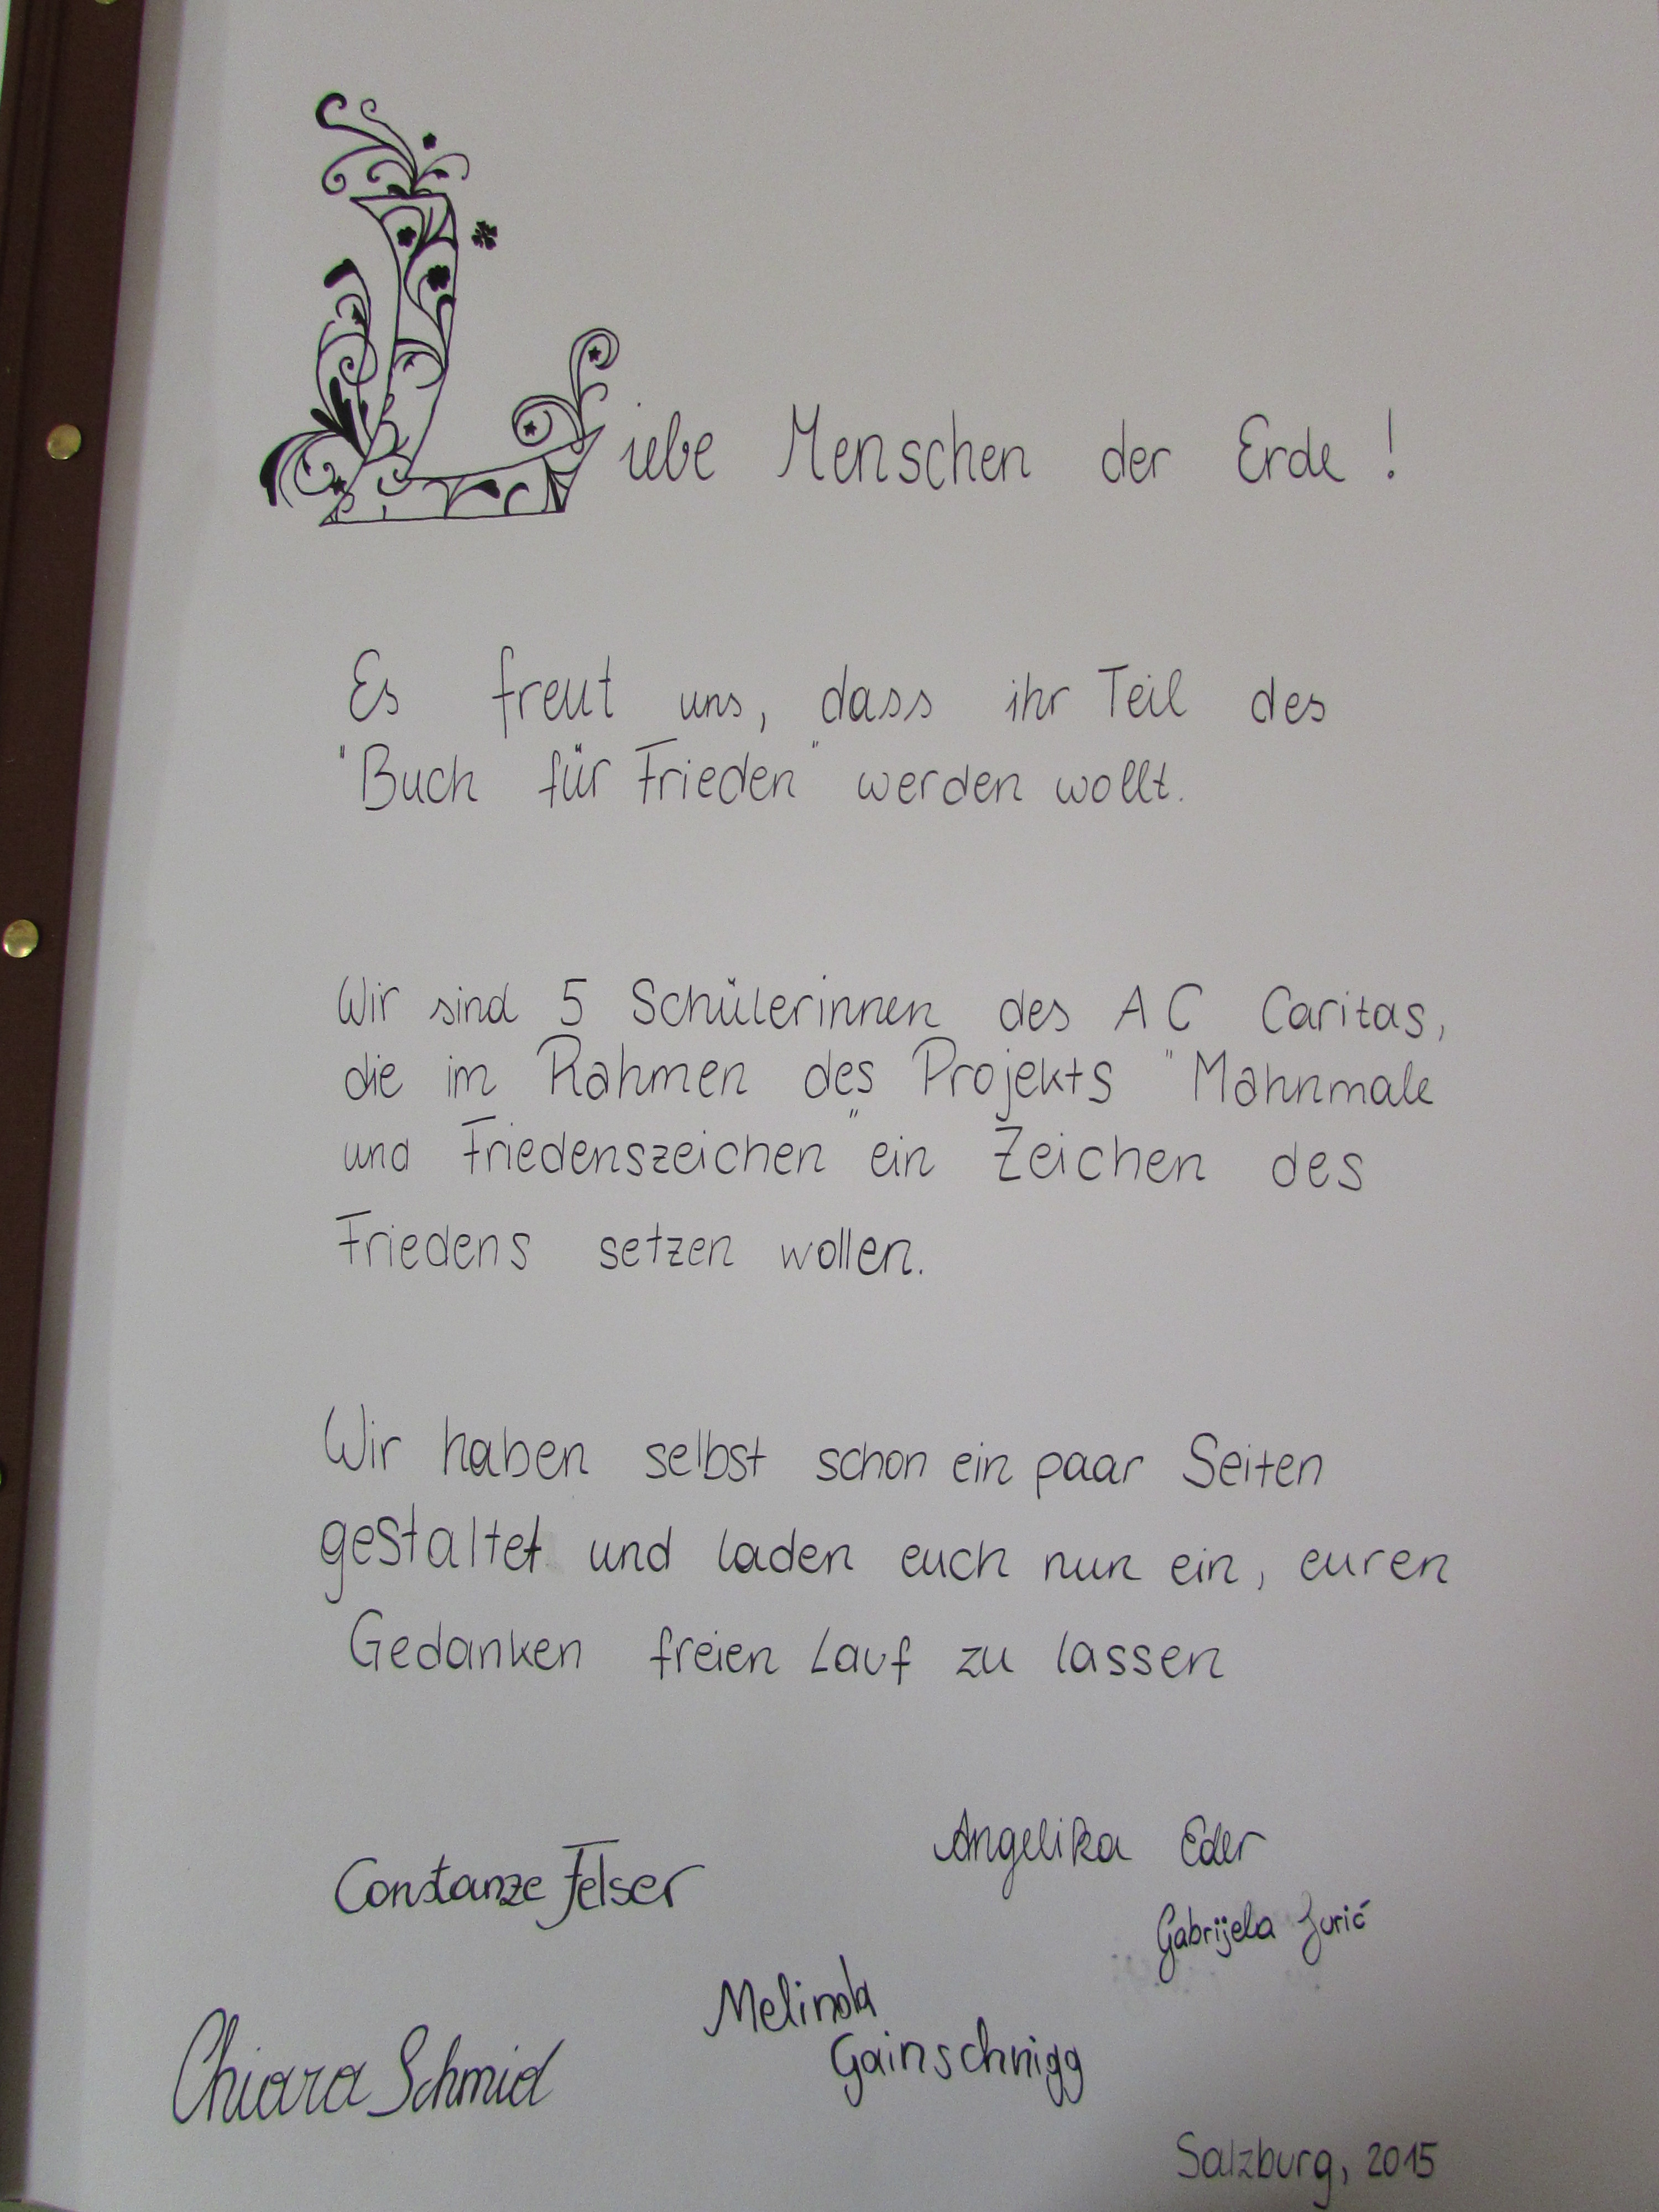 Liebe Menschen der Erde!
Es freut uns, dass ihr Teil des
"Buch für Frieden" werden wollt.
Wir sind 5 Schülerinnen des AC Caritas,
die im Rahmen des Projekts "Mahnmale
und Friedenszeichen" ein Zeichen des
Friedens setzen wollen.
Wir haben selbst schon ein paar Seiten
gestaltet und laden euch nun ein, euren
Gedanken freien Lauf zu lassen
Angelika Eder
Constanze Felser
Gabrijela Jurić
Melinda
Gainschnigg
Chiara Schmid
Salzburg, 2015